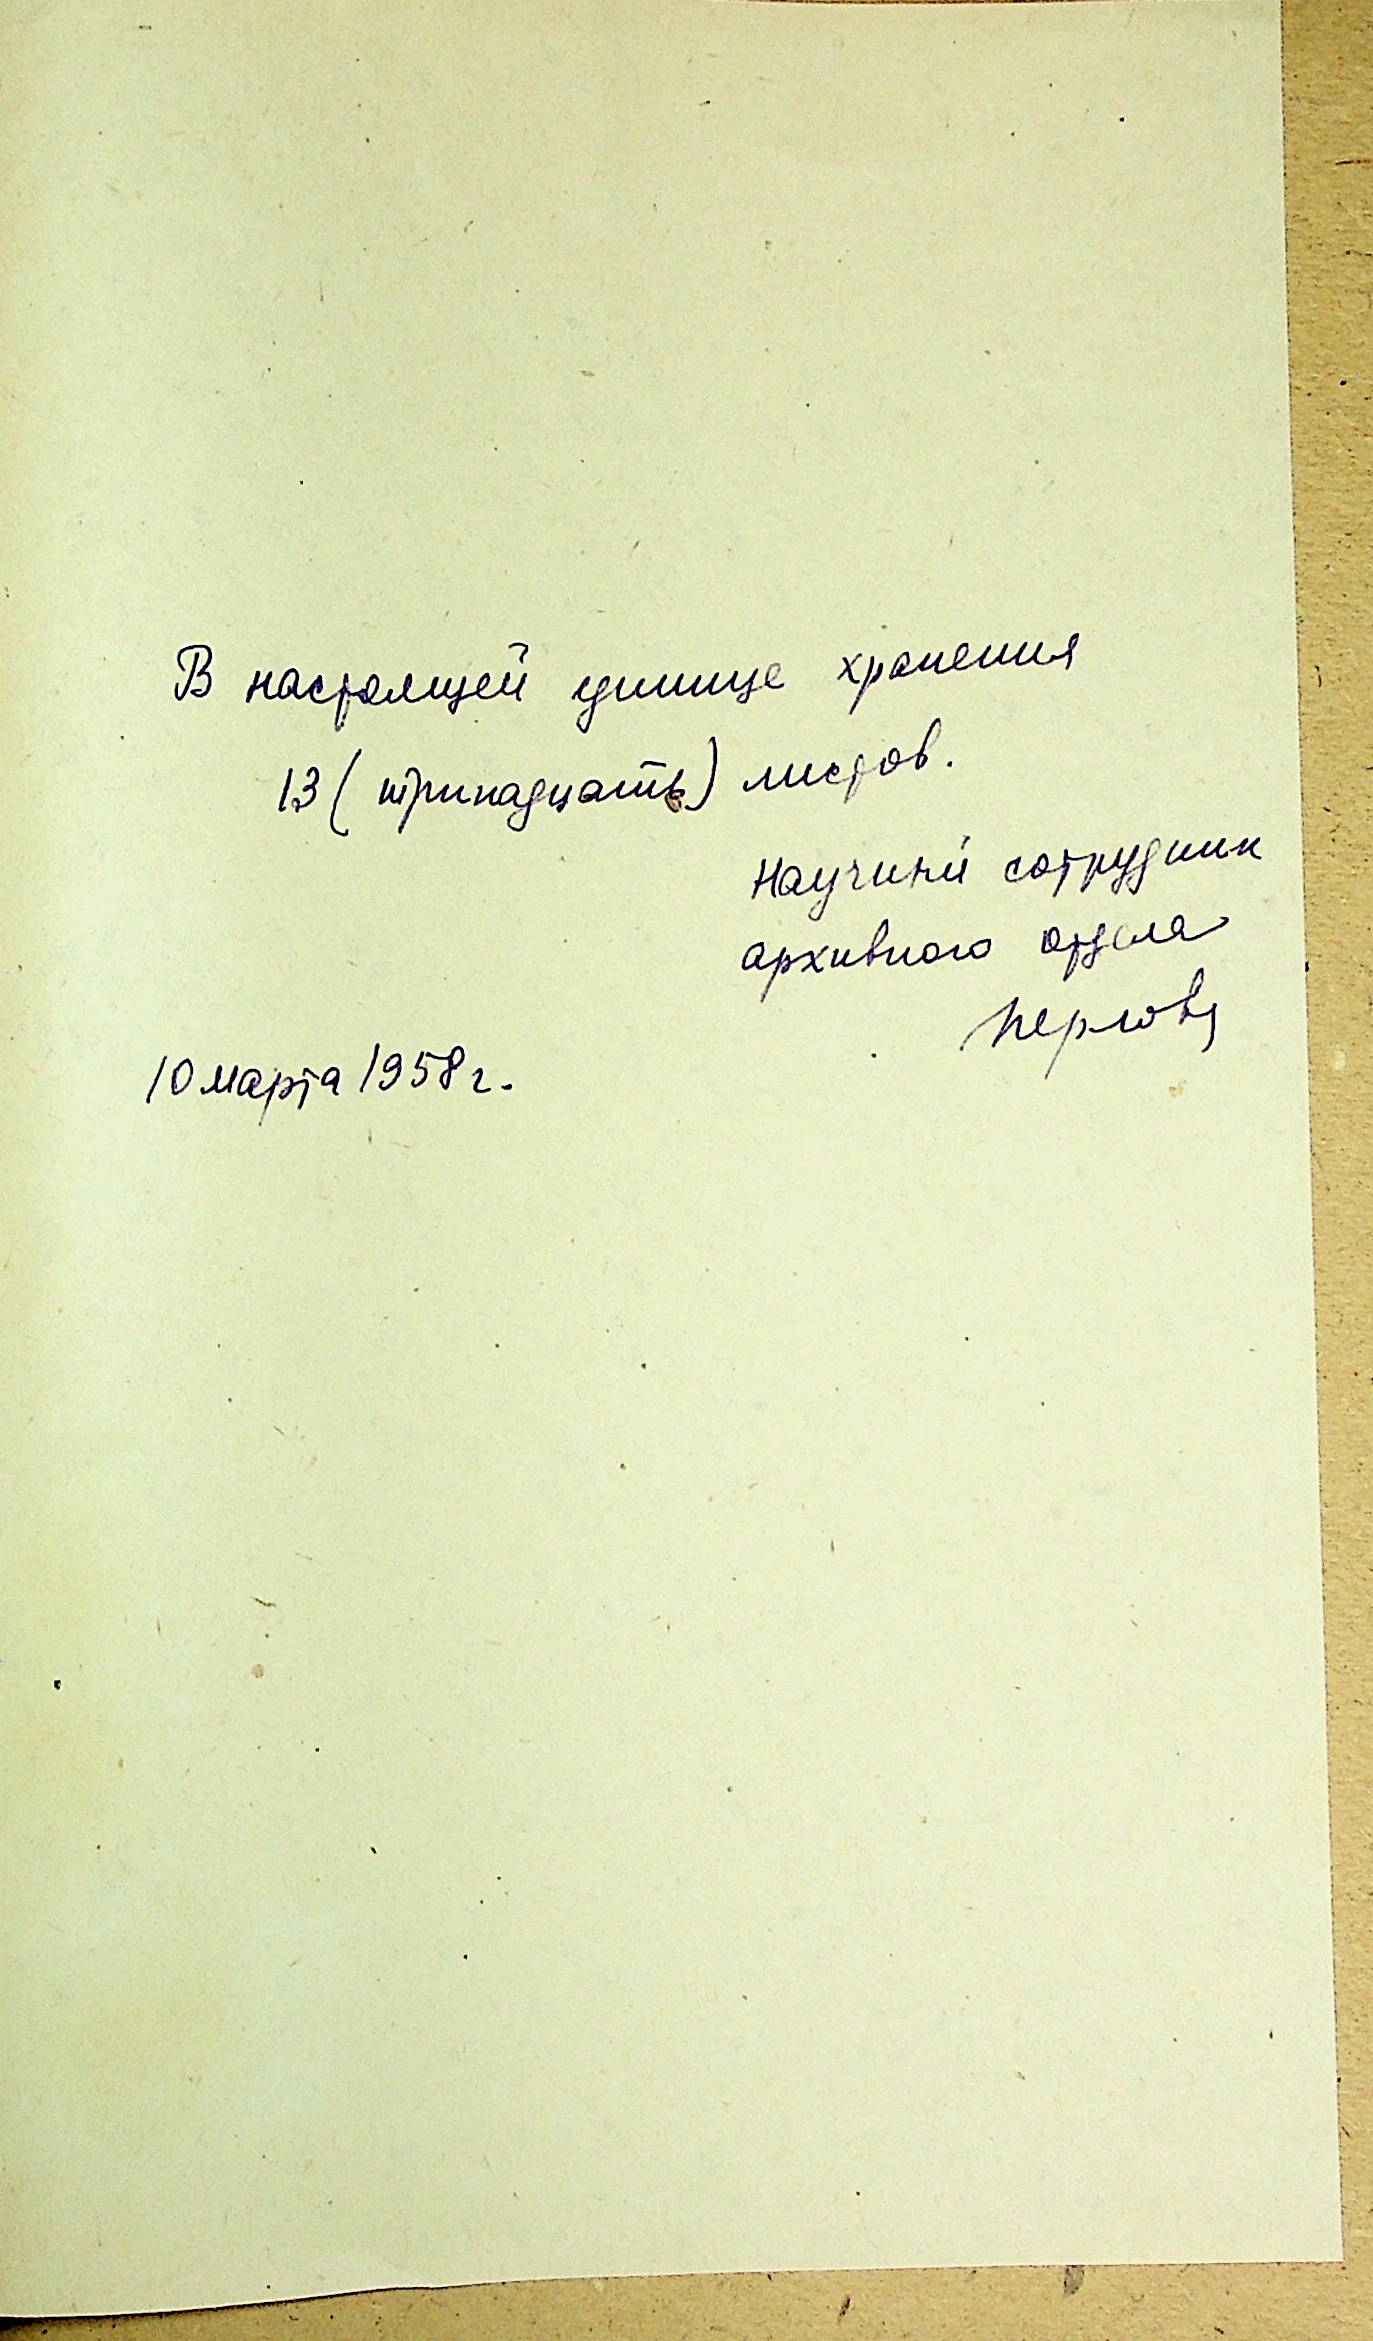 В настоящей единице хранения
13 (тринадцать) листов.
Научный сотрудник
архивного отдела
Перлова
10 марта 1958 г.